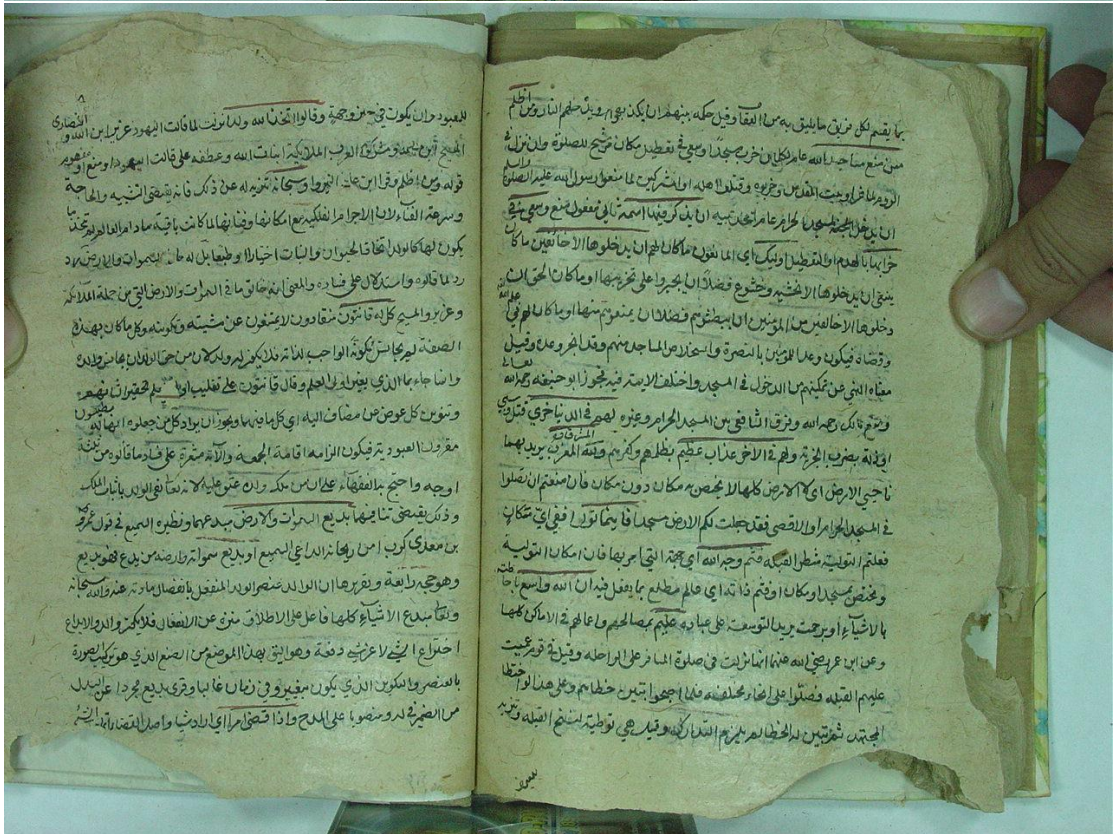 بما يقسم لكل فريق ما يليق به من العقاب وقيل حكمه بينهم ان يكذبهم ويدخلهم النار ومن اظلم
ممن منع مساجد الله عام لكل من خرب مسجدا او سعى في تعطيل مكان مرشح للصلوة وان نزل في
الروم لما غزوا بيت المقدس وخربوه وقتلوا اهله او المشركين لما منعوا رسول الله عليه الصلوة والسلام
ان يدخل المسجد الحرام عام الحديبية ان يذكر فيها اسمه ثاني مفعولي منع وسعى في
خرابها بالهدم او التعطيل اوليك اي المانعون ما كان لهم ان يدخلوها الا خائفين ما كان
ينبغي ان يدخلوها الا بخشية وخشوع فضلا ان يجترؤا على تخريبها او ما كان الحق ان
يدخلوها الا خائفين من المؤمنين ان يبطشوا بهم فضلا ان يمنعوهم منها او ما كان لهم في علم الله
وقضاه فيكون وعدا للمؤمنين بالنصرة واستخلاص المساجد منهم وقد انجز وعده وقيل
معناه النهي عن تمكينهم من الدخول في المسجد واختلف الائمة فيه فجوز ابو حنيفة رحمه الله تعالى
ومنع مالك رحمه الله وفرق الشافعي بين المسجد الحرام وغيره لهم في الدنيا خزي قتل وسبي
او ذلة بضرب الجزية ولهم في الاخرة عذاب عظيم بظلمهم وكفرهم ولله المشرق والمغرب يريد بهما
ناحيتي الارض اي له الارض كلها لا يختص به مكان دون مكان فان منعتم ان تصلوا
في المسجد الحرام او الاقصى فقد جعلت لكم الارض مسجدا فاينما تولوا ففي اي مكان
فعلتم التولية شطر القبلة فثم وجه الله اي جهته التي امر بها فان امكان التولية
لا يختص بمسجد او مكان او فثم ذاته اي عالم مطلع بما يفعل فيه ان الله واسع باحاطته
بالاشياء او برحمته يريد التوسعة على عباده عليم بمصالحهم واعمالهم في الاماكن كلها
وعن ابن عمر رضي الله عنهما انها نزلت في صلوة المسافر على الراحلة وقيل في قوم عميت
عليهم القبلة فصلوا على انحاء مختلفة فلما اصبحوا تبينوا خطاهم وعلى هذا لو اخطا
المجتهد ثم تبين له الخطا لم يلزمه التدارك وقيل هي توطية لنسخ القبلة وتنزيه
للمعبود ان يكون في حيز وجهة وقالوا اتخذ الله ولدا نزلت لما قالت اليهود عزير ابن الله والنصارى
المسيح ابن الله ومشركو العرب الملائكة بنات الله وعطفه على قالت اليهود او منع او مفهوم
قوله ومن اظلم وقرا ابن عامر بغير واو سبحانه تنزيه له عن ذلك فانه يقتضي التشبيه والحاجة
وسرعة الفناء الا ترى ان الاجرام الفلكية مع امكانها وفنائها لما كانت باقية ما دام العالم لم تتخذ ما
يكون لها كالولد اتخاذ الحيوان والنبات اختيارا او طبعا بل له ما في السموات والارض رد
لما قالوه واستدلال على فساده والمعنى انه خالق ما في السموات والارض التي من جملة الملائكة
وعزير والمسيح كل له قانتون منقادون لا يمتنعون عن مشيته وتكوينه وكل ما كان بهذه
الصفة لم يجانس مكونه الواجب لذاته فلا يكون له ولد لان من حق الولد ان يجانس والده
وانما جاء بما الذي لغير اولي العلم وقال قانتون على تغليب اولي العلم تحقيرا لشانهم
وتنوين كل عوض عن مضاف اليه اي كل ما فيهما ويجوز ان يراد كل من جعلوه الها له مطيعون
مقرون بالعبودية فيكون الزاما بعد اقامة الحجة والآية مشعرة على فساد ما قالوه من ثلثة
اوجه واحتج بها الفقهاء على ان من ملك ولده عتق عليه لانه تعالى نفى الولد باثبات الملك
وذلك يقتضي تنافيهما بديع السموات والارض مبدعهما ونظيره السميع في قول عمرو
بن معدي كرب امن ريحانة الداعي السميع او بديع سمواته وارضه من بدع فهو بديع
وهو حجة رابعة وتقريرها ان الوالد عنصر الولد المنفعل بانفصال مادته عنه والله سبحانه
وتعالى مبدع الاشياء كلها فاعل على الاطلاق منزه عن الانفعال فلا يكون والدا والابداع
اختراع الشي لا عن شي دفعة وهو اليق بهذا الموضع من الصنع الذي هو تركيب الصورة
بالعنصر والتكوين الذي يكون بتغيير وفي زمان غالبا وقرئ بديع مجرورا على البدل
من الضمير في له ومنصوبا على المدح واذا قضى امرا اي اراد شيا واصل القضا اتمام الشي